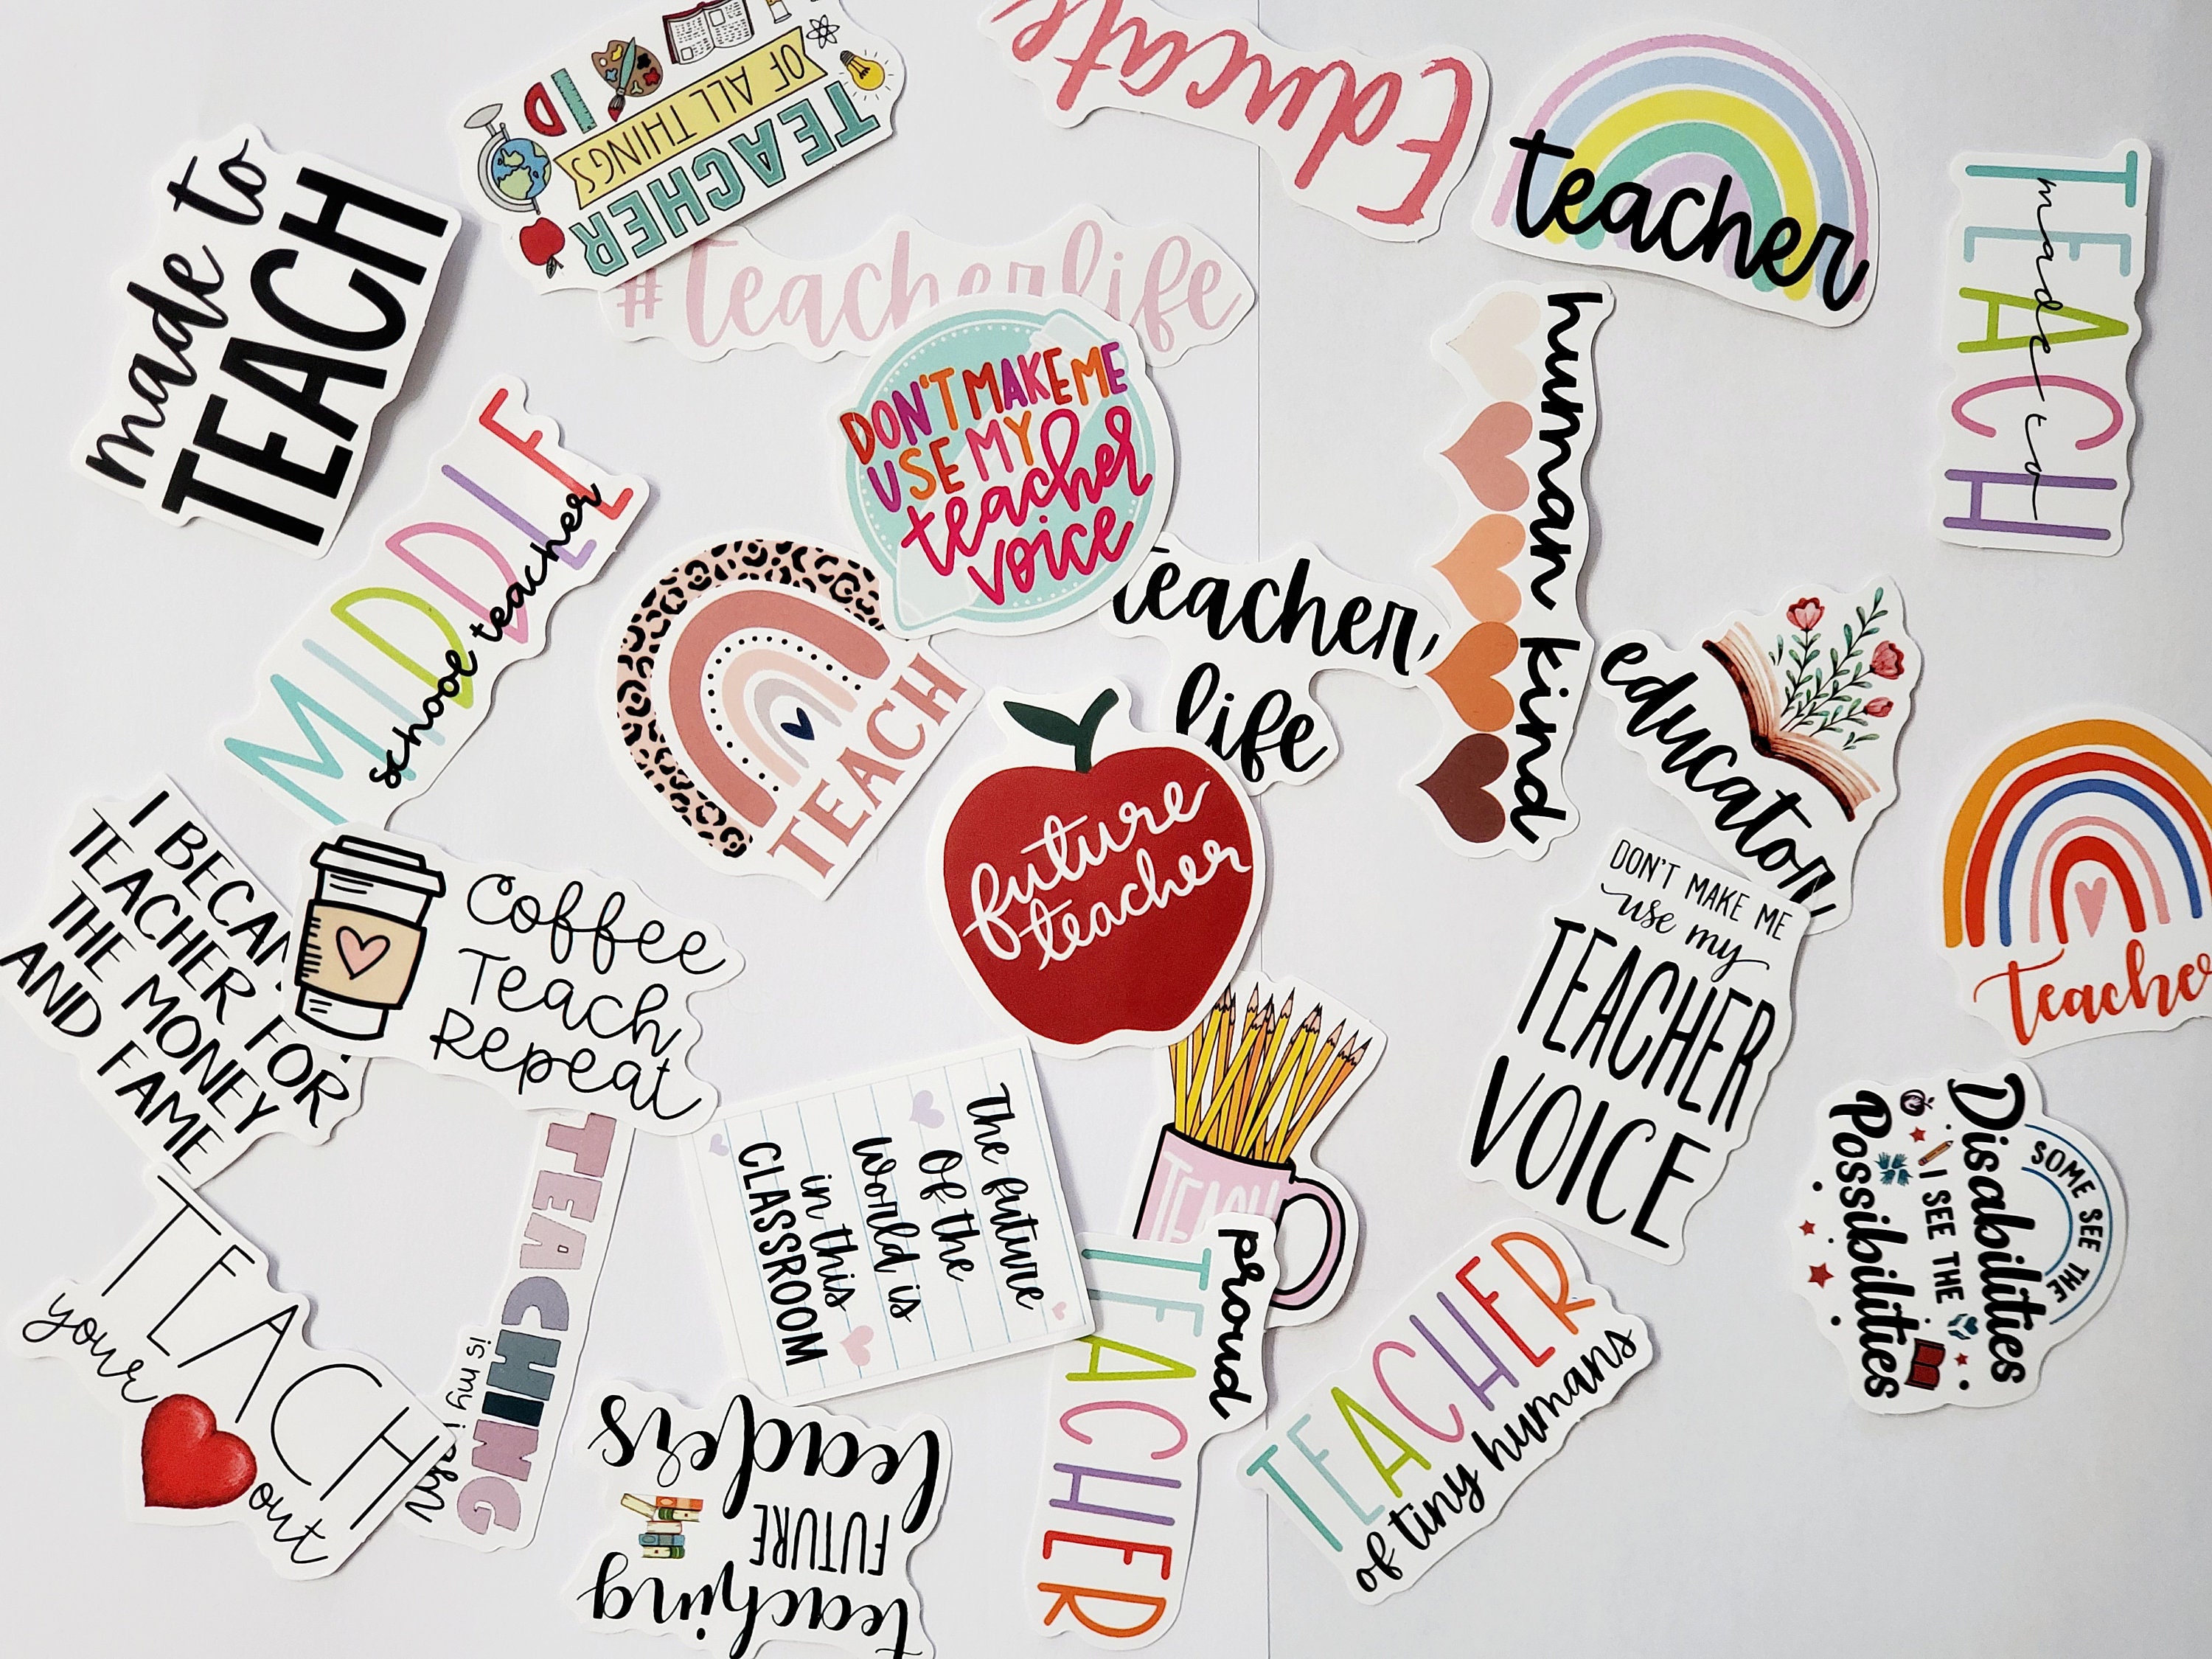 made to
TEACH
TEACHER
OF ALL THINGS
Educate
teacher
made to
TEACH
#teacherlife
DON'T MAKE ME
USE MY
teacher
voice
human kind
MIDDLE
school teacher
TEACH
teacher
life
educator
future
teacher
I BECAM
TEACHER FOR
THE MONEY
AND FAME
Coffee
Teach
Repeat
DON'T MAKE ME
use my
TEACHER
VOICE
teache
The future
Of the
World is
in this
CLASSROOM
TEACH
SOME SEE THE
Disabilities
I SEE THE
Possibilities
TEACH
your
out
TEACHING
is my
proud
TEACHER
TEACHER
of tiny humans
teaching
FUTURE
leaders